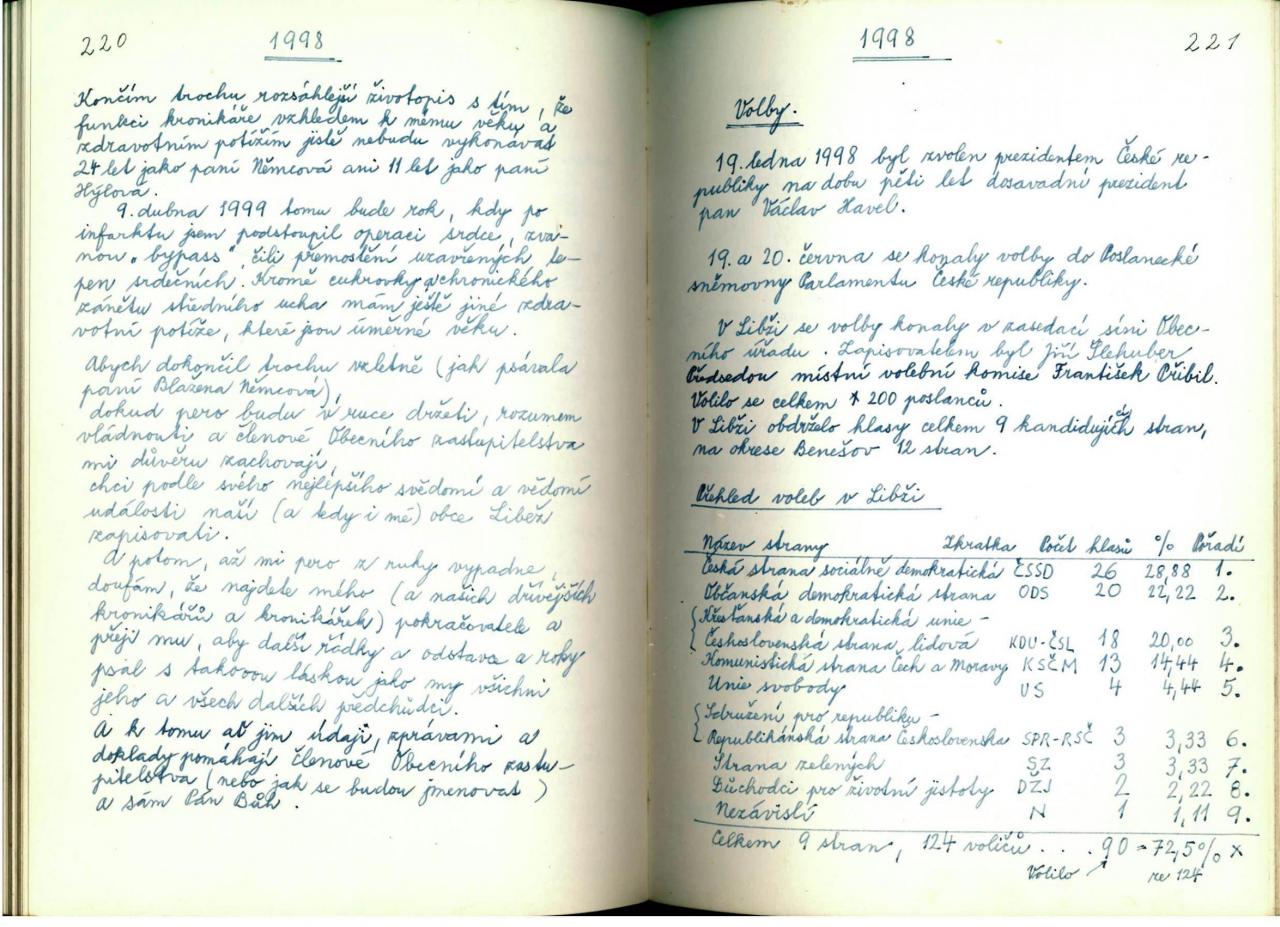 220
1998
Končím trochu rozsáhlejší životopis s tím, že
funkci kronikáře vzhledem k mému věku a
zdravotním potížím jistě nebudu vykonávat
24 let jako paní Němcová ani 11 let jako paní
Hýlová.
9. dubna 1999 tomu bude rok, kdy po
infarktu jsem podstoupil operaci srdce, zva-
nou „bypass", čili přemostění uzavřených te-
pen srdečních. Kromě cukrovky a chronického
zánětu středního ucha mám ještě jiné zdra-
votní potíže, které jsou úměrné věku.
Abych dokončil trochu vzletně (jak psávala
paní Blažena Němcová),
dokud pero budu v ruce držeti, rozumem
vládnouti a členové Obecního zastupitelstva
mi důvěru zachovají,
chci podle svého nejlepšího svědomí a vědomí
události naší (a tedy i mé) obce Libež
zapisovati.
A potom, až mi pero z ruky vypadne,
doufám, že najdete mého (a našich dřívějších
kronikářů a kronikářek) pokračovatele a
přeji mu, aby další řádky a odstavce a roky
psal s takovou láskou jako my všichni
jeho a všech dalších předchůdci.
A k tomu ať jim údaji, zprávami a
doklady pomáhají členové Obecního zastu-
pitelstva (nebo jak se budou jmenovat)
a sám Pán Bůh.
1998
221
Volby.
19. ledna 1998 byl zvolen prezidentem České re-
publiky na dobu pěti let dosavadní prezident
pan Václav Havel.
19. a 20. června se konaly volby do Poslanecké
sněmovny Parlamentu České republiky.
V Libži se volby konaly v zasedací síni Obec-
ního úřadu. Zapisovatelem byl Jiří Slehuber
Předsedou místní volební komise František Přibil.
Volilo se celkem 200 poslanců.
V Libži obdrželo hlasy celkem 9 kandidujících stran,
na okrese Benešov 12 stran.
Přehled voleb v Libži
Název strany Zkratka Počet hlasů % Pořadí
Česká strana sociálně demokratická ČSSD 26 28,88 1.
Občanská demokratická strana ODS 20 22,22 2.
Křesťanská a demokratická unie -
Československá strana lidová KDU-ČSL 18 20,00 3.
Komunistická strana Čech a Moravy KSČM 13 14,44 4.
Unie svobody US 4 4,44 5.
Sdružení pro republiku -
Republikánská strana Československa SPR-RSČ 3 3,33 6.
Strana zelených SZ 3 3,33 7.
Důchodci pro životní jistoty DŽJ 2 2,22 8.
Nezávislí N 1 1,11 9.
Celkem 9 stran, 124 voličů . . . 90 = 72,5% x
Volilo ze 124